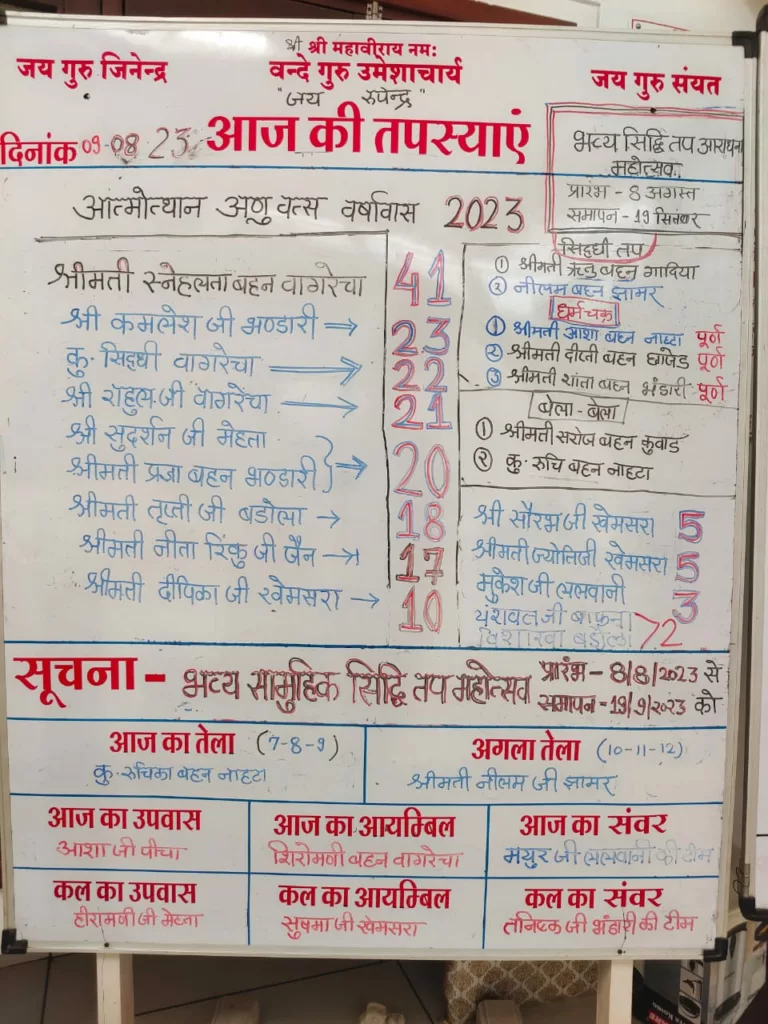 श्री श्री महावीराय नमः
जय गुरु जिनेन्द्र
वन्दे गुरु उमेशाचार्य
जय गुरु संयत
"जय रुपेन्द्र"
दिनांक 09-08 23
आज की तपस्याएं
भव्य सिद्धि तप आराधना
महोत्सव
प्रारंभ - 8 अगस्त
समापन - 19 सितम्बर
आत्मोत्थान अणु वत्स वर्षावास 2023
श्रीमती स्नेहलता बहन वागरेचा 41
श्री कमलेश जी भण्डारी ⇒ 23
कु. सिद्धी वागरेचा ⇒ 22
श्री राहुल जी वागरेचा → 21
श्री सुदर्शन जी मेहता
श्रीमती प्रज्ञा बहन भण्डारी } → 20
श्रीमती तृप्ती जी बडोला → 18
श्रीमती नीता रिंकु जी जैन → 17
श्रीमती दीपिका जी खेमसरा → 10
सिद्धी तप
① श्रीमती ऋतु बहन गादिया
② नीलम बहन झामर
धर्मचक्र
① श्रीमती आशा बहन नाहटा पूर्ण
② श्रीमती दीप्ती बहन छाजेड पूर्ण
③ श्रीमती शांता बहन भंडारी पूर्ण
बेला - बेला
① श्रीमती सरोज बहन कुवाड
② कु. रुचि बहन नाहटा
श्री सौरभ जी खेमसरा 5
श्रीमती ज्योति जी खेमसरा 5
मुकेश जी ललवानी 3
यशवंत जी बाफना
विशाखा बडोला > 2
सूचना - भव्य सामुहिक सिद्धि तप महोत्सव
प्रारंभ - 8/8/2023 से
समापन - 19/9/2023 को
आज का तेला (7-8-9)
कु. रुचिका बहन नाहटा
अगला तेला (10-11-12)
श्रीमती नीलम जी झामर
आज का उपवास
आशा जी पीचा
आज का आयम्बिल
शिरोमणी बहन वागरेचा
आज का संवर
मयुर जी ललवानी की टीम
कल का उपवास
हीरामणी जी मेहता
कल का आयम्बिल
सुषमा जी खेमसरा
कल का संवर
तनिष्क जी भंडारी की टीम